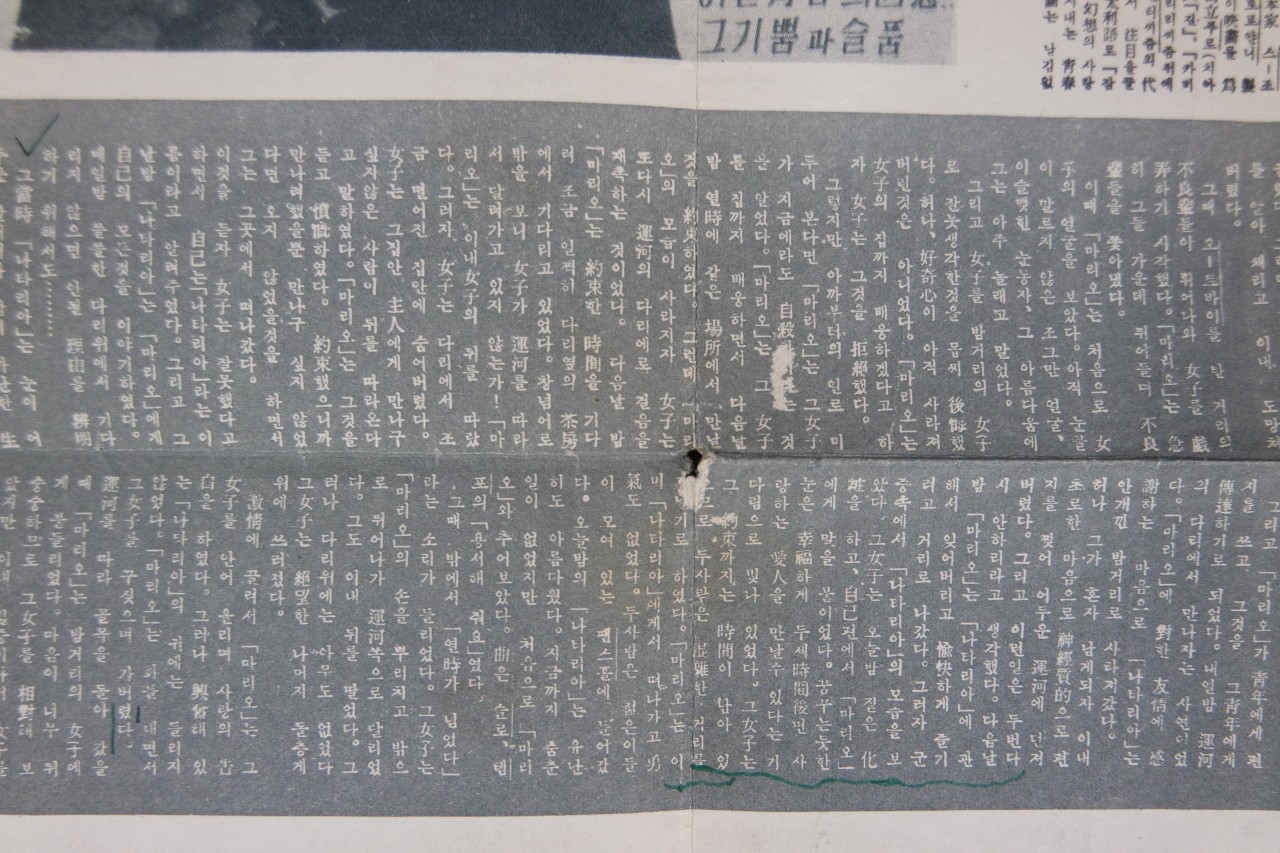 그기쁨과슬픔
本家 스—조
로로안니 製
이 映畵를 爲
리끼좀뒤에
버렸다.
그때 오—트바이를 탄 거리의
不良輩들이 뛰어나와 女子를 戱
弄하기 시작했다.「마리오」는 急
히 그들 가운데 뛰어들어 不良
輩들을 쫓아냈다.
이때 「마리오」는 처음으로 女
子의 얼굴을 보았다.아직 눈물
이 말르지 않은 조그만 얼굴,
이슬맺힌 눈동자,그 아름다움에
그는 아주 놀래고 말었다.
그리고 女子를 밤거리의 女子
로 잘못생각한것을 몹씨 後悔했
다.허나, 好奇心이 아직 사라져
버린것은 아니었다.「마리오」는
女子의 집까지 배웅하겠다고 하
자 女子는 그것을 拒絕했다.
그렇지만 아까부터의 인로 미
루어 본다면 「마리오」는 그女子
가 지금에라도 自殺 것
을 알었다.「마리오」는 그 女子
를 집까지 배웅하면서 다음날
밤 열時에 같은 場所에서 만날
것을 約束하였다 그런데 「마리
오」의 모습이 사라지자 女子는
또다시 運河의 다리에로 걸음을
재촉하는 것이었다. 다음날 밤
「마리오」는 約束한 時間을 기다
려 조금 일찍히 다리옆의 茶房
에서 기다리고 있었다.창넘어로
밤을 보니 女子가 運河를 따라
서 달려가고 있지 않는가!「마
리오」는 이내女子의 뒤를 따랐
다.그러자 女子는 다리에서 조
금 떨어진 집안에 숨어버렸다.
女子는 그집안 主人에게 만나구
싶지않은 사람이 뒤를 따라온다
고 말하였다.「마리오」는 그것을
듣고 憤慨하였다. 約束했으니까
만나려했을뿐 만나구 싶지 않었
다면 오지 않었을것을 하면서
그는 그곳에서 떠나갔다.
이것을 듣자 女子는 잘못했다고
하면서 自己는「나타리아」라는 이
름이라고 알려주었다.그리고 그
날밤 「나타리아」는 「마리오」에게
自己의 모든것을 이야기하였다.
매일밤 쓸쓸한 다리위에서 기다
리지 않으면 안될 理由를 辯明
하기 위해서도………
그當時 「나타리아」는 눈이 어
그리고 「마리오」가 靑年에게 편
지를 쓰고 그것을 그靑年에게
傳達하기로 되었다.내일밤 運河
의 다리에서 만나자는 사연이었
다.「마리오」에 對한 友情에 感
謝하는 마음으로 「나타리아」는
안개낀 밤거리로 사라져갔다.
허나 그가 혼자 남게되자 이내
초로한 마음으로 神經質的으로 편
지를 찢어 어두운 運河에 던져
버렸다.그리고 이런일은 두번다
시 안하리라고 생각했다.다음날
밤 「마리오」는 「나타리아」에 관
해서 잊어버리고 愉快하게 즐기
려고 거리로 나갔다.그러자 군
중속에서 「나타리아」의 모습을 보
왔다 그女子는 오늘밤 짙은 化
粧을 하고、自己편에서 「마리오」
에게 말을 붙이었다.꿈꾸는듯한
눈은 幸福하게 두세時間後면 사
랑하는 愛人을 만날수 있다는 기
다림으로 빛나 있었다.그女子는
그 約束까지는 時間이 남아 있
으로.두사람은 混雜한 거리를
기로 하였다.「마리오」는 이
미 「나타리아」에게서 떠나가고 勇
氣도 없었다.두사람은 젊은이들
이 모여 있는 땐스홀에 들어갔
다.오늘밤의 「나타리아」는 유난
히도 아름다웠다.지금까지 춤춘
일이 없었지만 처음으로 「마리
오」와 추어보았다. 曲은 슬로、템
포의「용서해 줘요」였다.
그때 밖에서 「열時가 넘었다」
라는 소리가 들리었다.그女子는
「마리오」의 손을 뿌리치고 밖으
로 뛰어나가 運河쪽으로 달리었
다.그도 이내 뒤를 딸었다.그
러나 다리위에는 아무도 없었다
그女子는 絕望한 나머지 돌층계
위에 쓰러졌다.
激情에 끌려서 「마리오」는 그
女子를 안어 올리며 사랑의 告
白을 하였다.그러나 興奮해 있
는「나타리아」의 귀에는 들리지
않었다.「마리오」는 화를 내면서
그女子를 꾸짖으며 가버렸다.
運河를 따라 골목을 돌아 갔을
때 「마리오」는 밤거리의 女子에
게 붙들리었다.마음이 너무 뒤
숭숭하므로 그女子를 相對해 보